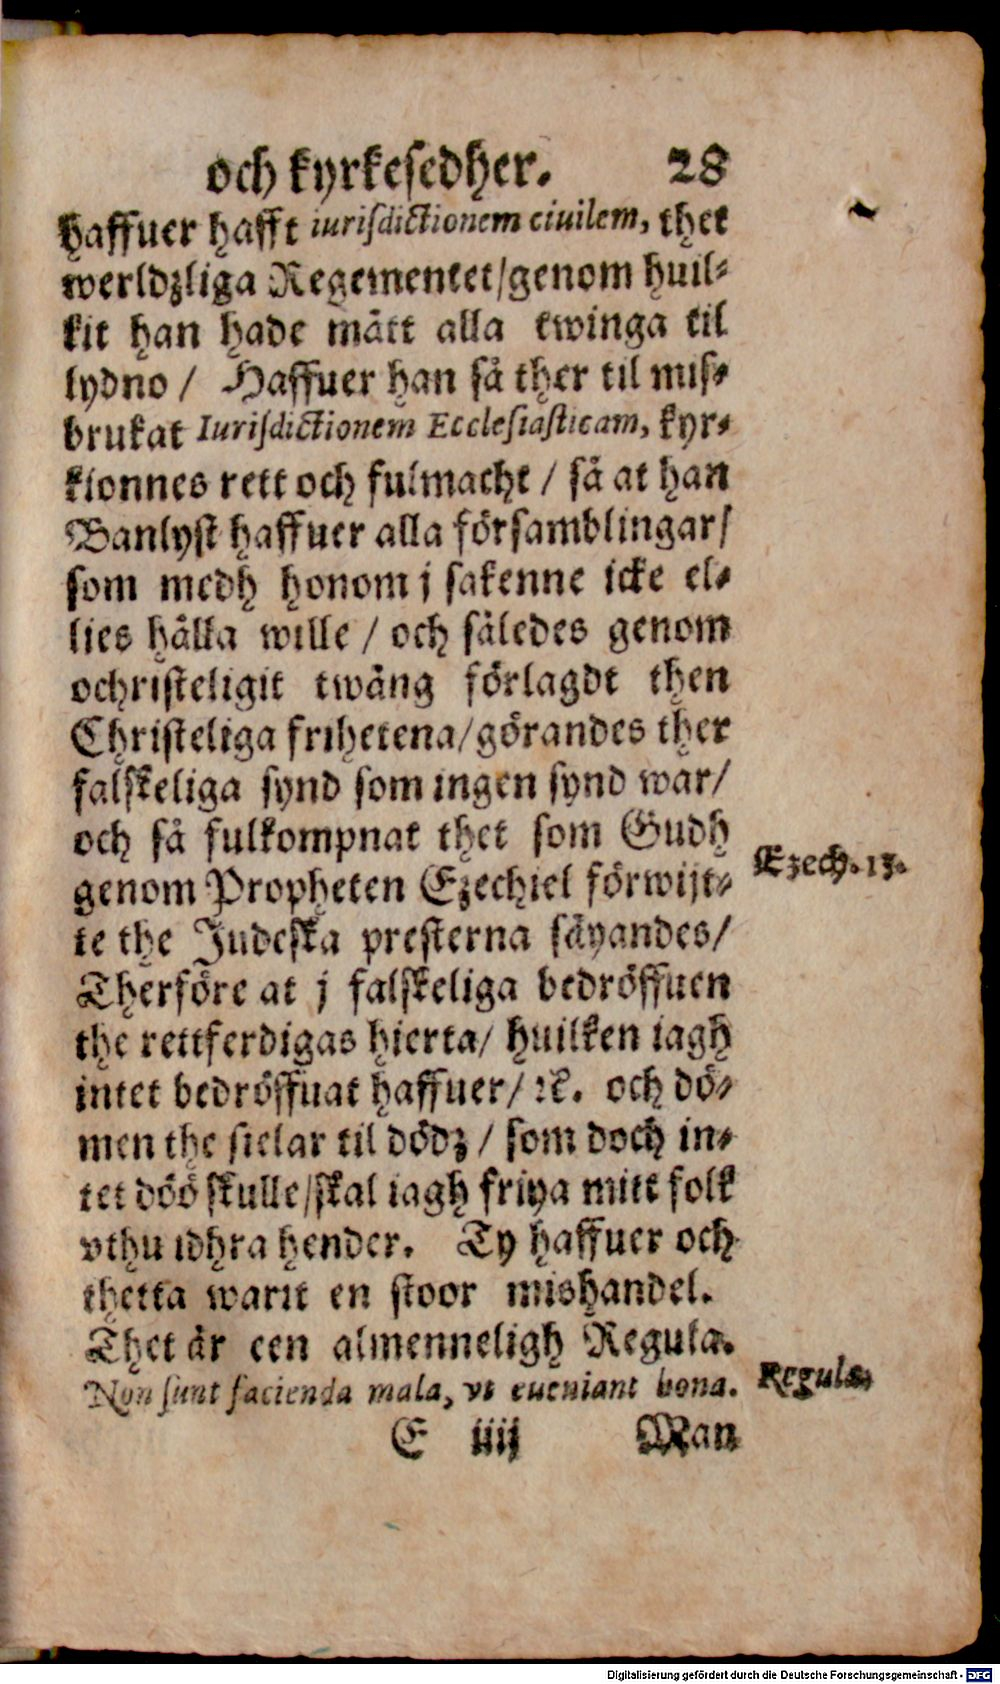 och kyrkesedher. 28
haffuer hafft iurisdictionem ciuilem, thet
werldzliga Regementet/genom huil-
kit han hade mått alla twinga til
lydno / Haffuer han så ther til mis-
brukat Iurisdictionem Ecclesiasticam, kyr-
kionnes rett och fulmacht / så at han
Banlyst haffuer alla församblingar/
som medh honom j sakenne icke el-
lies hålla wille / och således genom
ochristeligit twång förlagdt then
Christeliga frihetena/görandes ther
falskeliga synd som ingen synd war/
och så fulkompnat thet som Gudh
genom Propheten Ezechiel förwijt-
te the Judeska presterna säyandes/
Therföre at j falskeliga bedröffuen
the rettferdigas hierta/ huilken iagh
intet bedröffuat haffuer/ ꝛc. och dö-
men the sielar til dödz / som doch in-
tet döö skulle/skal iagh friya mitt folk
vthu idhra hender. Ty haffuer och
thetta warit en stoor mishandel.
Thet är een almenneligh Regula.
Non sunt facienda mala, vt eueniant bona.
E iiij Man
Ezech. 13.
Regula.
Digitalisierung gefördert durch die Deutsche Forschungsgemeinschaft - DFG